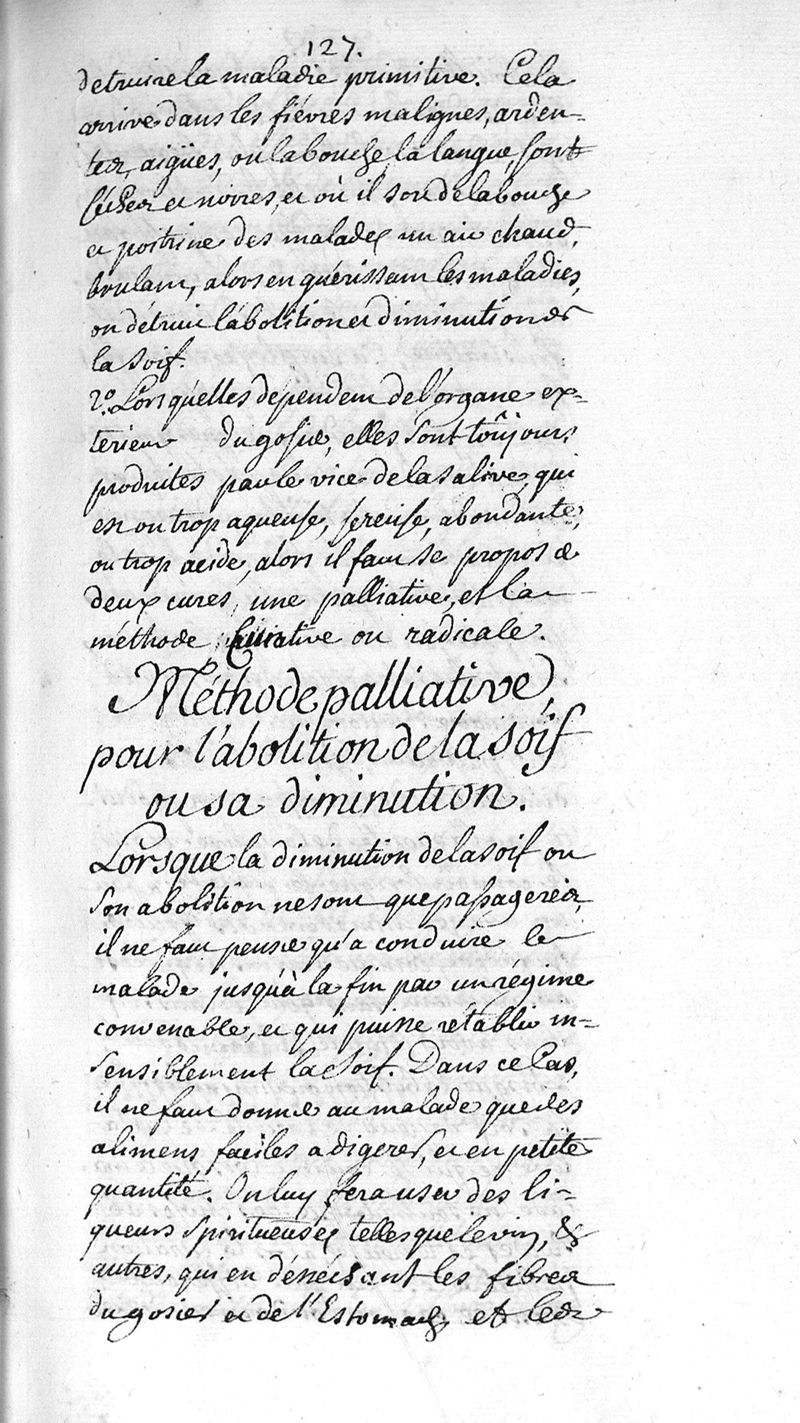 127.
detruire la maladie primitive. Cela
arrive dans les fiévres malignes, arden=
tes, aigües, ou la bouche, la langue, sont
séches et noires, et où il sort de la bouche
et poitrine des malades un air chaud,
brulant, alors en guérissant les maladies,
on détruit l'abolition et diminution de
la soif.
2.º Lorsqu'elles dependent de l'organe ex=
terieur du gosier, elles sont toûjours
produites par le vice de la salive, qui
est ou trop aqueuse, sereuse, abondante,
ou trop acide, alors il faut se propos er
deux cures, une palliative, et la
méthode curative ou radicale.
Méthode palliative,
pour l'abolition de la soif
ou sa diminution.
Lorsque la diminution de la soif ou
son abolition ne sont que passageres,
il ne faut penser qu'a conduire le
malade jusqu'à la fin par un régime
convenable, et qui puisse rétablir in=
sensiblement la soif. Dans ce Cas,
il ne faut donner au malade que des
alimens faciles a digerer, et en petite
quantité. On luy fera user des li=
queurs spiritueuses telles que le vin, &
autres, qui en désséisant les fibres
du gosier et de l'Estomach et les